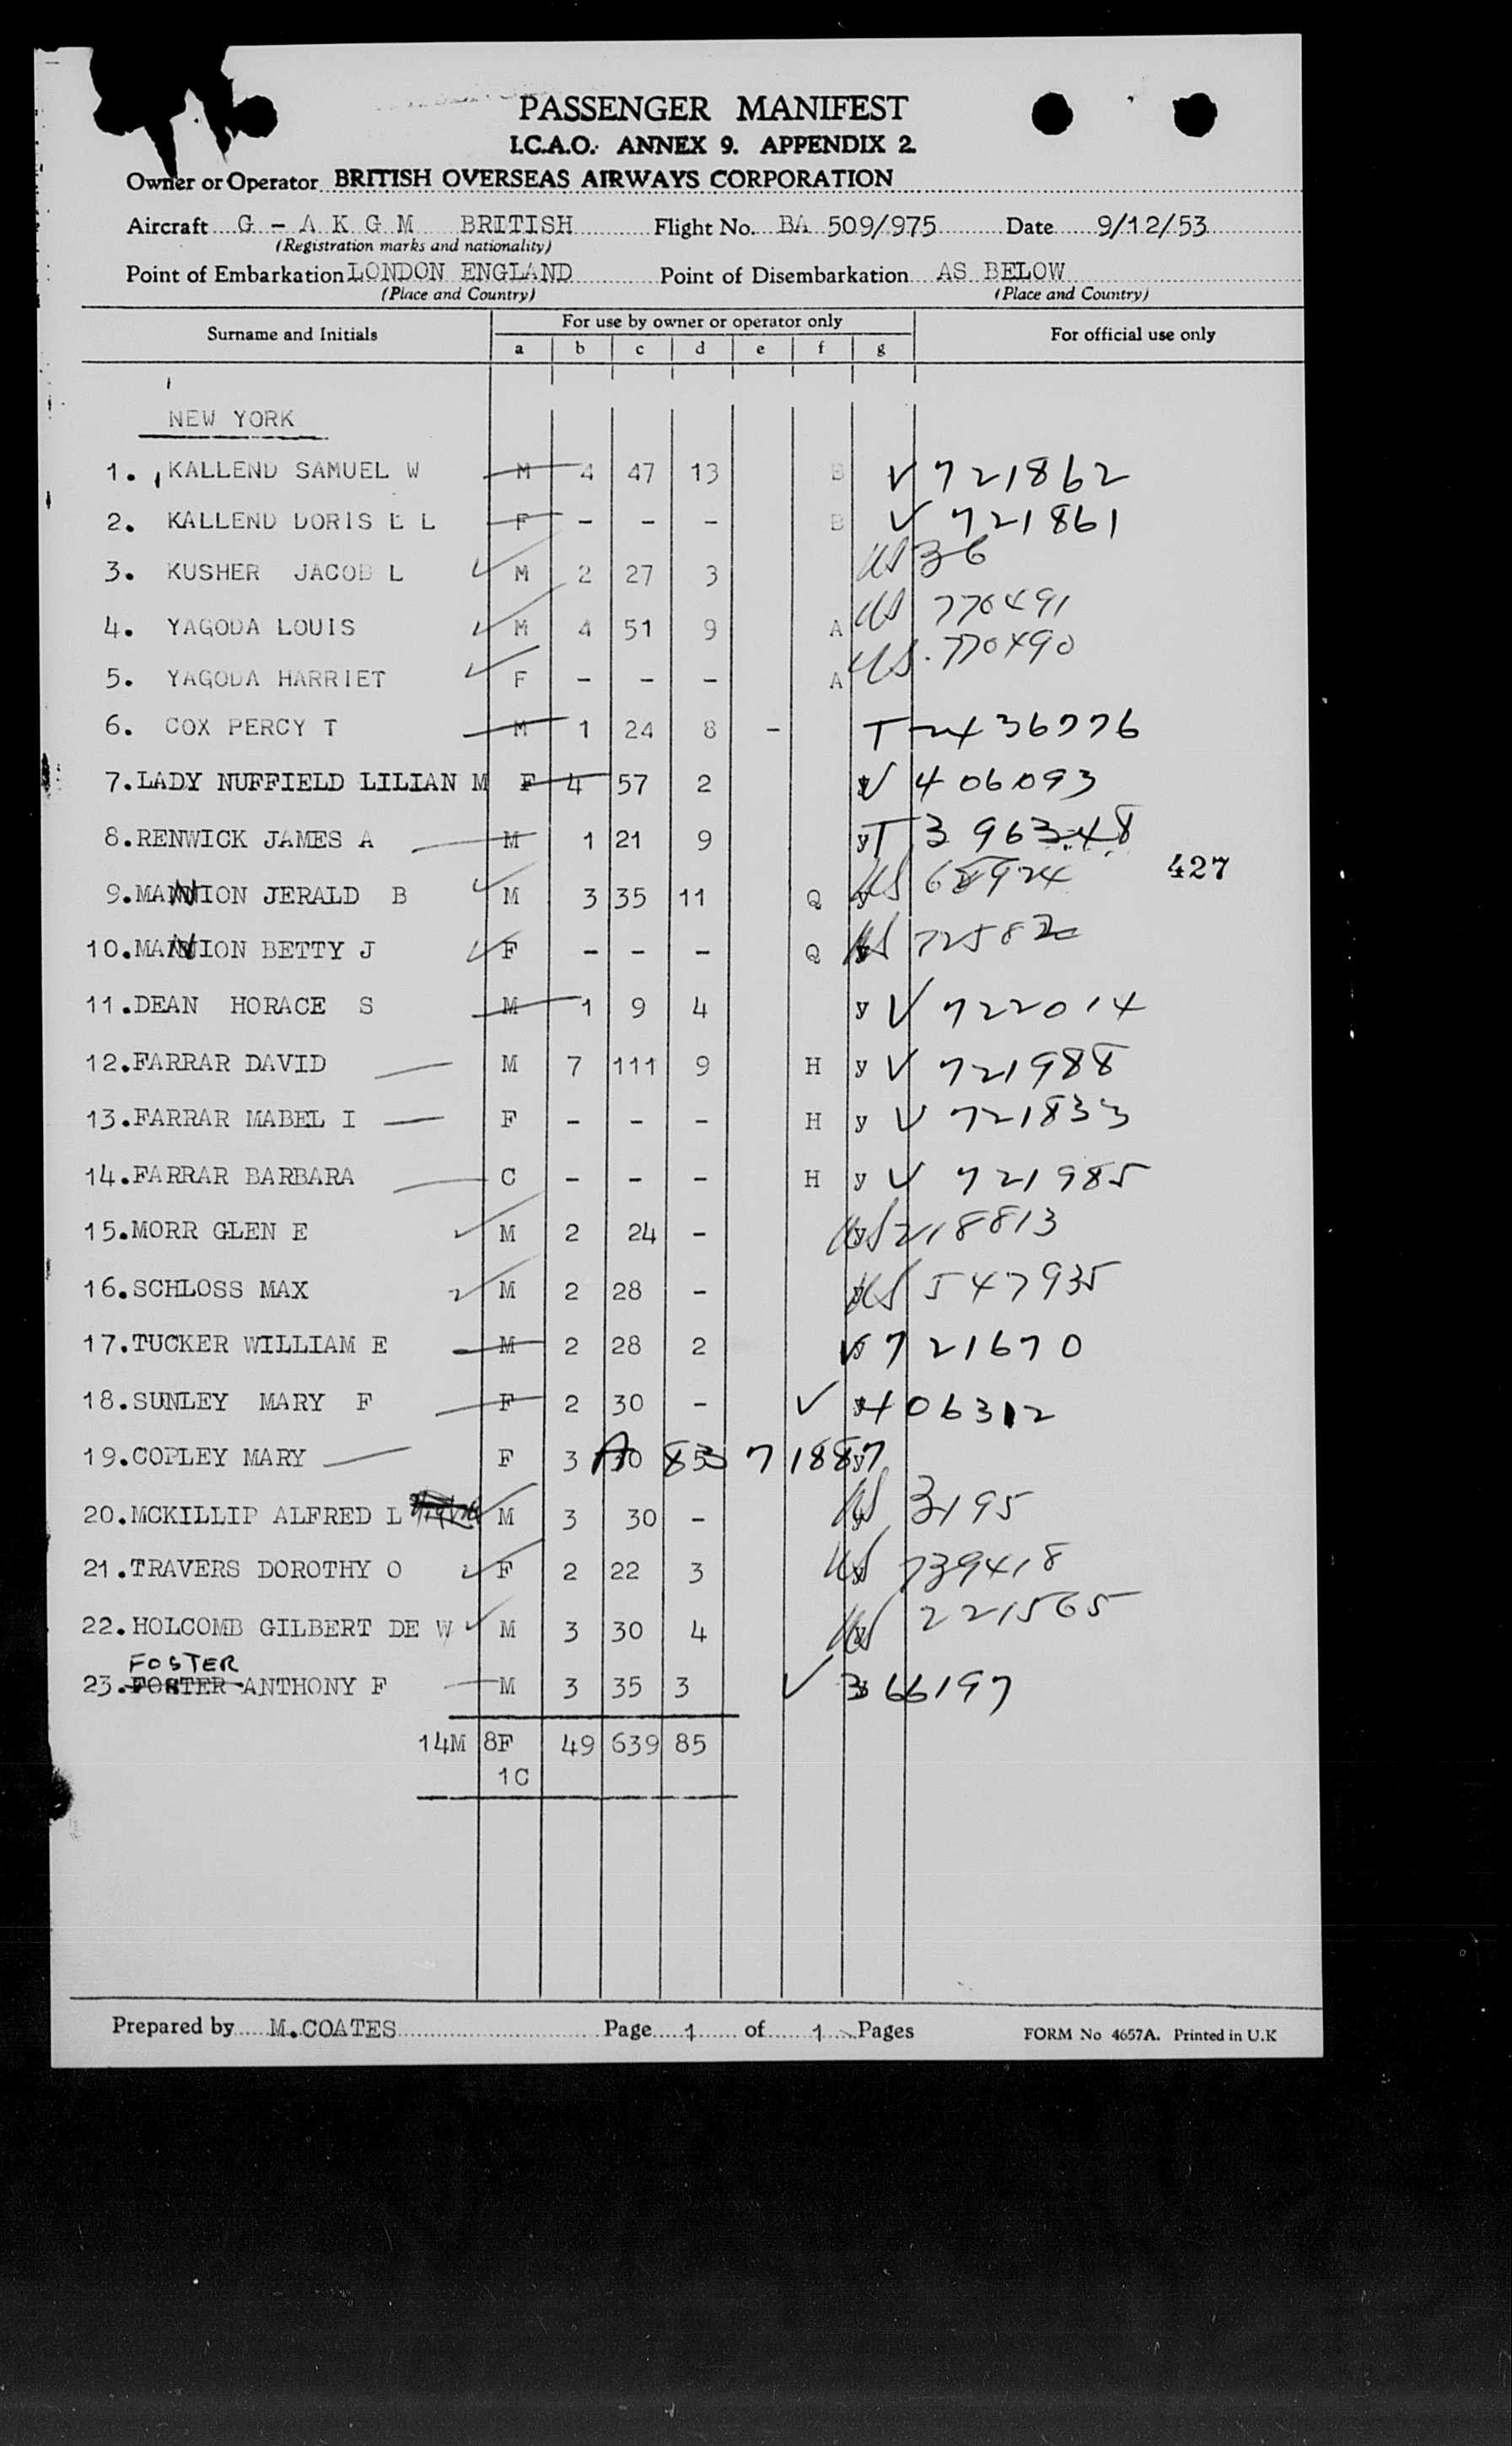 PASSENGER MANIFEST
I.C.A.O. ANNEX 9. APPENDIX 2.
Owner or Operator BRITISH OVERSEAS AIRWAYS CORPORATION
Aircraft G - A K G M BRITISH Flight No. BA 509/975 Date 9/12/53
(Registration marks and nationality)
Point of Embarkation LONDON ENGLAND Point of Disembarkation AS BELOW
(Place and Country) (Place and Country)
Surname and Initials For use by owner or operator only For official use only
a b c d e f g
NEW YORK
1. KALLEND SAMUEL W M 4 47 13 B V 721862
2. KALLEND DORIS E L F - - - B V 721861
3. KUSHER JACOB L M 2 27 3 US 36
4. YAGODA LOUIS M 4 51 9 A US 770491
5. YAGODA HARRIET F - - - A US 770490
6. COX PERCY T M 1 24 8 - T 2436776
7. LADY NUFFIELD LILIAN M F 4 57 2 y V 406093
8. RENWICK JAMES A M 1 21 9 y T 396348
427
9. MANNION JERALD B M 3 35 11 Q y US
10. MANNION BETTY J F - - - Q y US
11. DEAN HORACE S M 1 9 4 y V 722014
12. FARRAR DAVID M 7 111 9 H y V 721988
13. FARRAR MABEL I F - - - H y V 721833
14. FARRAR BARBARA C - - - H y V 721985
15. MORR GLEN E M 2 24 - y US 218813
16. SCHLOSS MAX M 2 28 - y US 547935
17. TUCKER WILLIAM E M 2 28 2 y V 721670
18. SUNLEY MARY F F 2 30 - V y 406312
19. COPLEY MARY F 3 30 A 83 71887 y
20. MCKILLIP ALFRED L M 3 30 - y US 3195
21. TRAVERS DOROTHY O F 2 22 3 y US 739418
22. HOLCOMB GILBERT DE W M 3 30 4 y US 221565
FOSTER
23. FOSTER ANTHONY F M 3 35 3 V y 366197
14M 8F 49 639 85
1C
Prepared by M.COATES Page 1 of 1 Pages FORM No 4657A. Printed in U.K